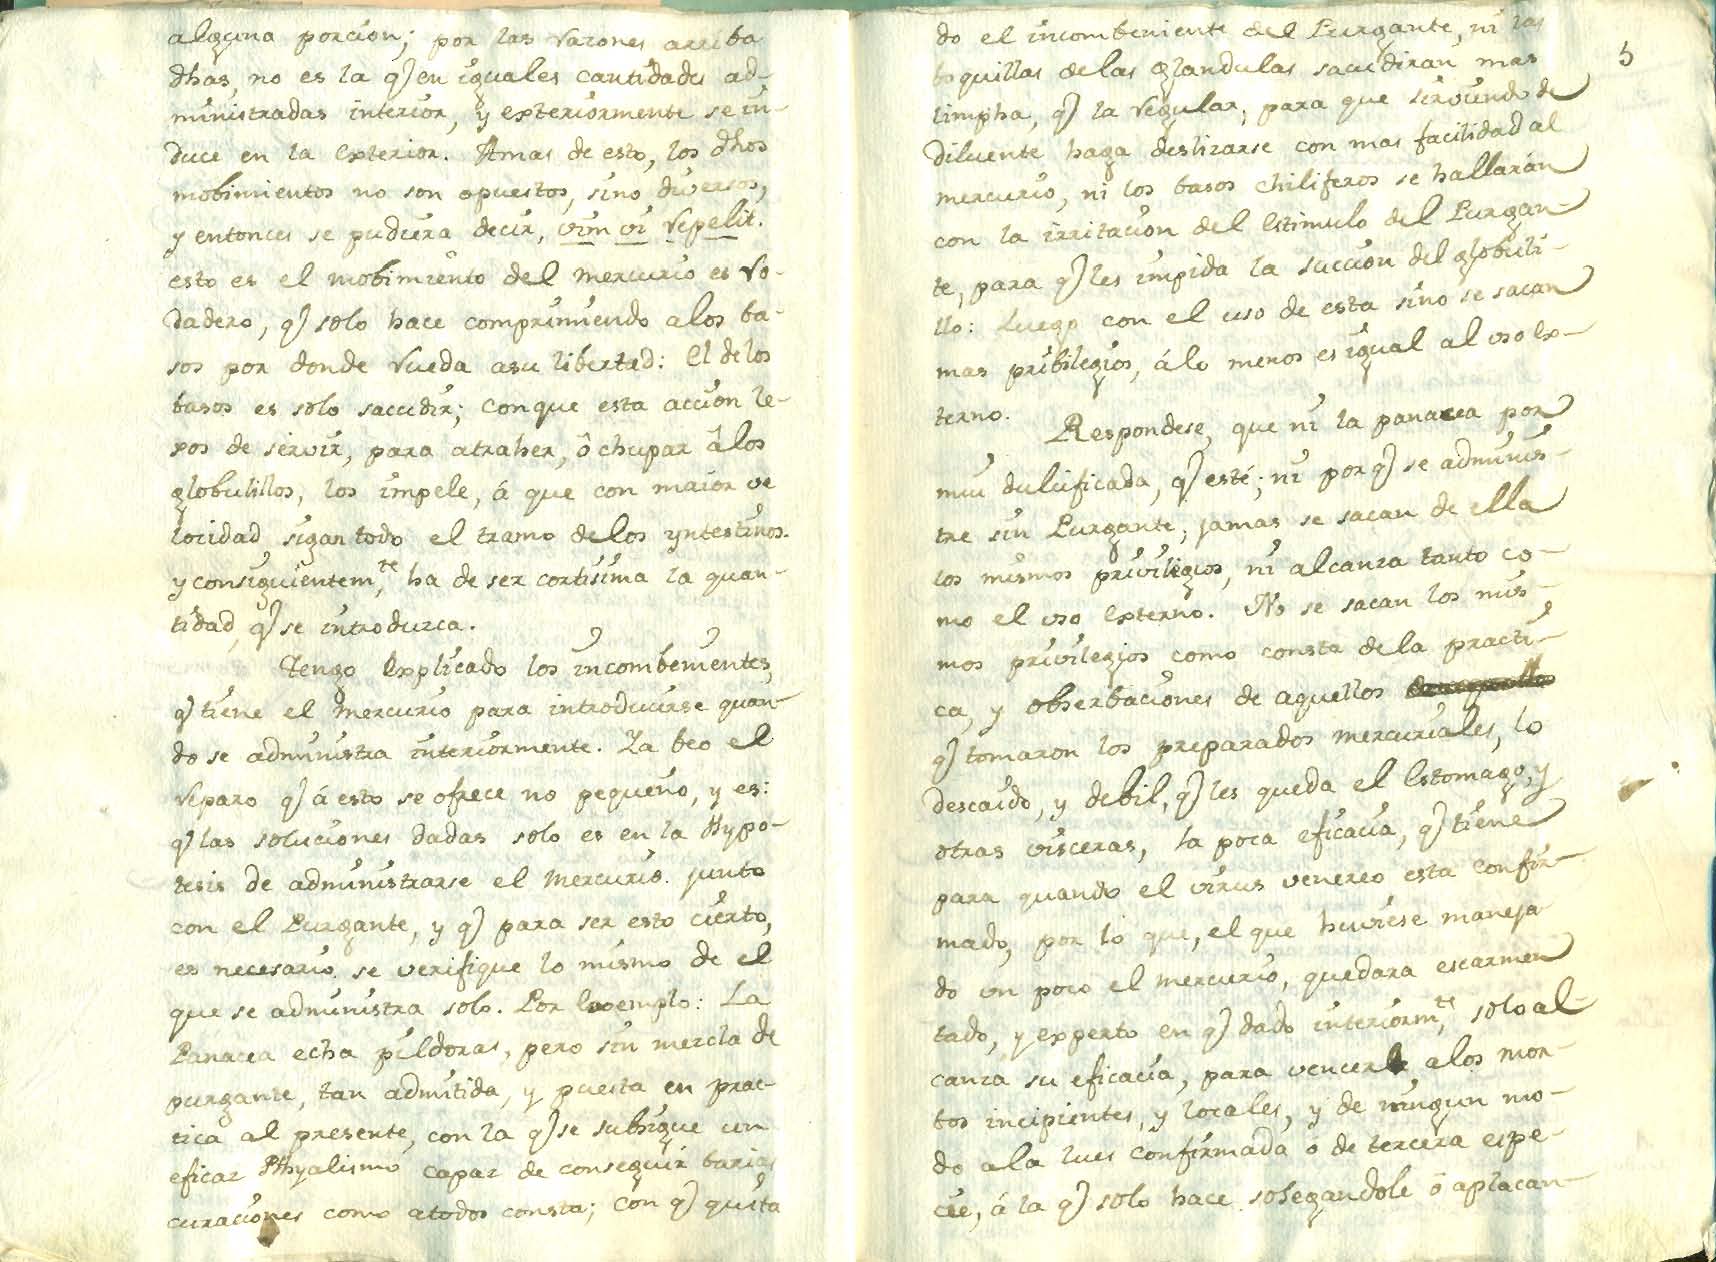 alguna porcion; por las razones arriba
dhas, no es la q) en iguales cantidades ad-
ministradas interior, y exteriormente se in-
duce en la exterior. Amas de esto, los dhos
mobimientos no son opuestos, sino diversos,
y entonces se pudiera decir, vim vi repelit.
esto es el mobimiento del mercurio es ro-
dadero, q) solo hace comprimiendo a los ba-
sos por donde rueda asu libertad: El de los
basos es solo sacudir; conque esta accion le-
xos de servir, para atraher, ô chupar â los
globulillos, los impele, á que con maior ve
locidad sigan todo el tramo delos yntestinos.
y consiguientemte, ha de ser cortisima la quan-
tidad, q) se introdurca.
Tengo explicado los incombenientes,
q) tiene el mercurio para introducirse quan-
do se administra interiormente. Ya beo el
reparo q) á esto se ofrece no pequeño, y es:
q) las soluciones dadas solo es en la Hypo-
tesis de administrarse el mercurio. junto
con el Purgante, y q) para ser esto cierto,
es necesario. se verifique lo mismo de el
que se administra solo. Por exemplo: La
Panacea echa pildoras, pero sin mezcla de
purgante, tan admitida, y puesta en prac-
tica al presente, con la q) se subsigue un
eficaz Pthyalismo capaz de conseguir barias
curaciones como atodos consta; con q) quita
5
do el incombeniente del Purgante, ni las
boquillas delas glandulas sacudiran mas
limpha, q) la regular, para que sirviendo de
diluente haga deslizarse con mas facilidad al
mercurio, ni los basos chiliferos se hallarán
con la irritacion del estimulo del Purgan-
te, para q) les impida la succion del globuli-
llo: Luego con el uso de esta sino se sacan
mas pribilegios, á lo menos es igual al uso ex-
terno.
Respondese, que ni la panacea por
mui dulcificada, q) esté; ni por q) se adminis-
tre sin Purgante; jamas se sacan de ella
los mismos privilegios, ni alcanza tanto co-
mo el uso externo. No se sacan los mis-
mos privilegios como consta de la practi-
ca, y obserbaciones de aquellos
q) tomaron los preparados mercuriales, lo
descaido, y debil, q) les queda el estomago, y
otras visceras, la poca eficacia, q) tiene
para quando el virus venereo esta confir-
mado, por lo que, el que huviese maneja
do un poco el mercurio, quedara escarmen
tado, y experto en q) dado interiormte, solo al-
canza su eficacia, para vencer a los mor-
bos incipientes, y locales, y de ningun mo-
do a la lues confirmada o de tercera espe-
cie, á la q) solo hace sosegandole ô aplacan-